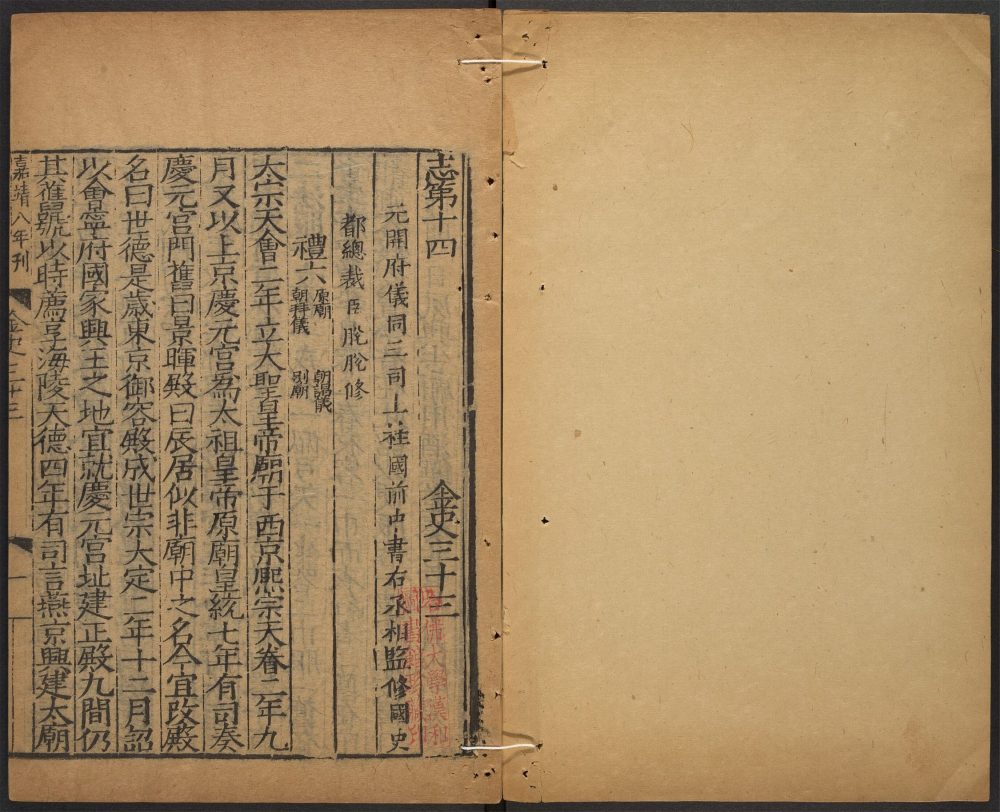 志第十四 金史三十三
元開府儀同三司上柱國前中書右丞相監修國史
都總裁臣脫脫修
禮六 原廟 朝謁儀
朝拜儀 別廟
太宗天會二年立大聖皇帝廟于西京熙宗天眷二年九
月又以上京慶元宮爲太祖皇帝原廟皇統七年有司奏
慶元宮門舊曰景暉殿曰辰居似非廟中之名今宜改殿
名曰世德是歲東京御容殿成世宗大定二年十二月詔
以會寧府國家興王之地宜就慶元宮址建正殿九間仍
其舊號以時薦享海陵天德四年有司言燕京興建太廟
嘉靖八年刊
金史三十三
一